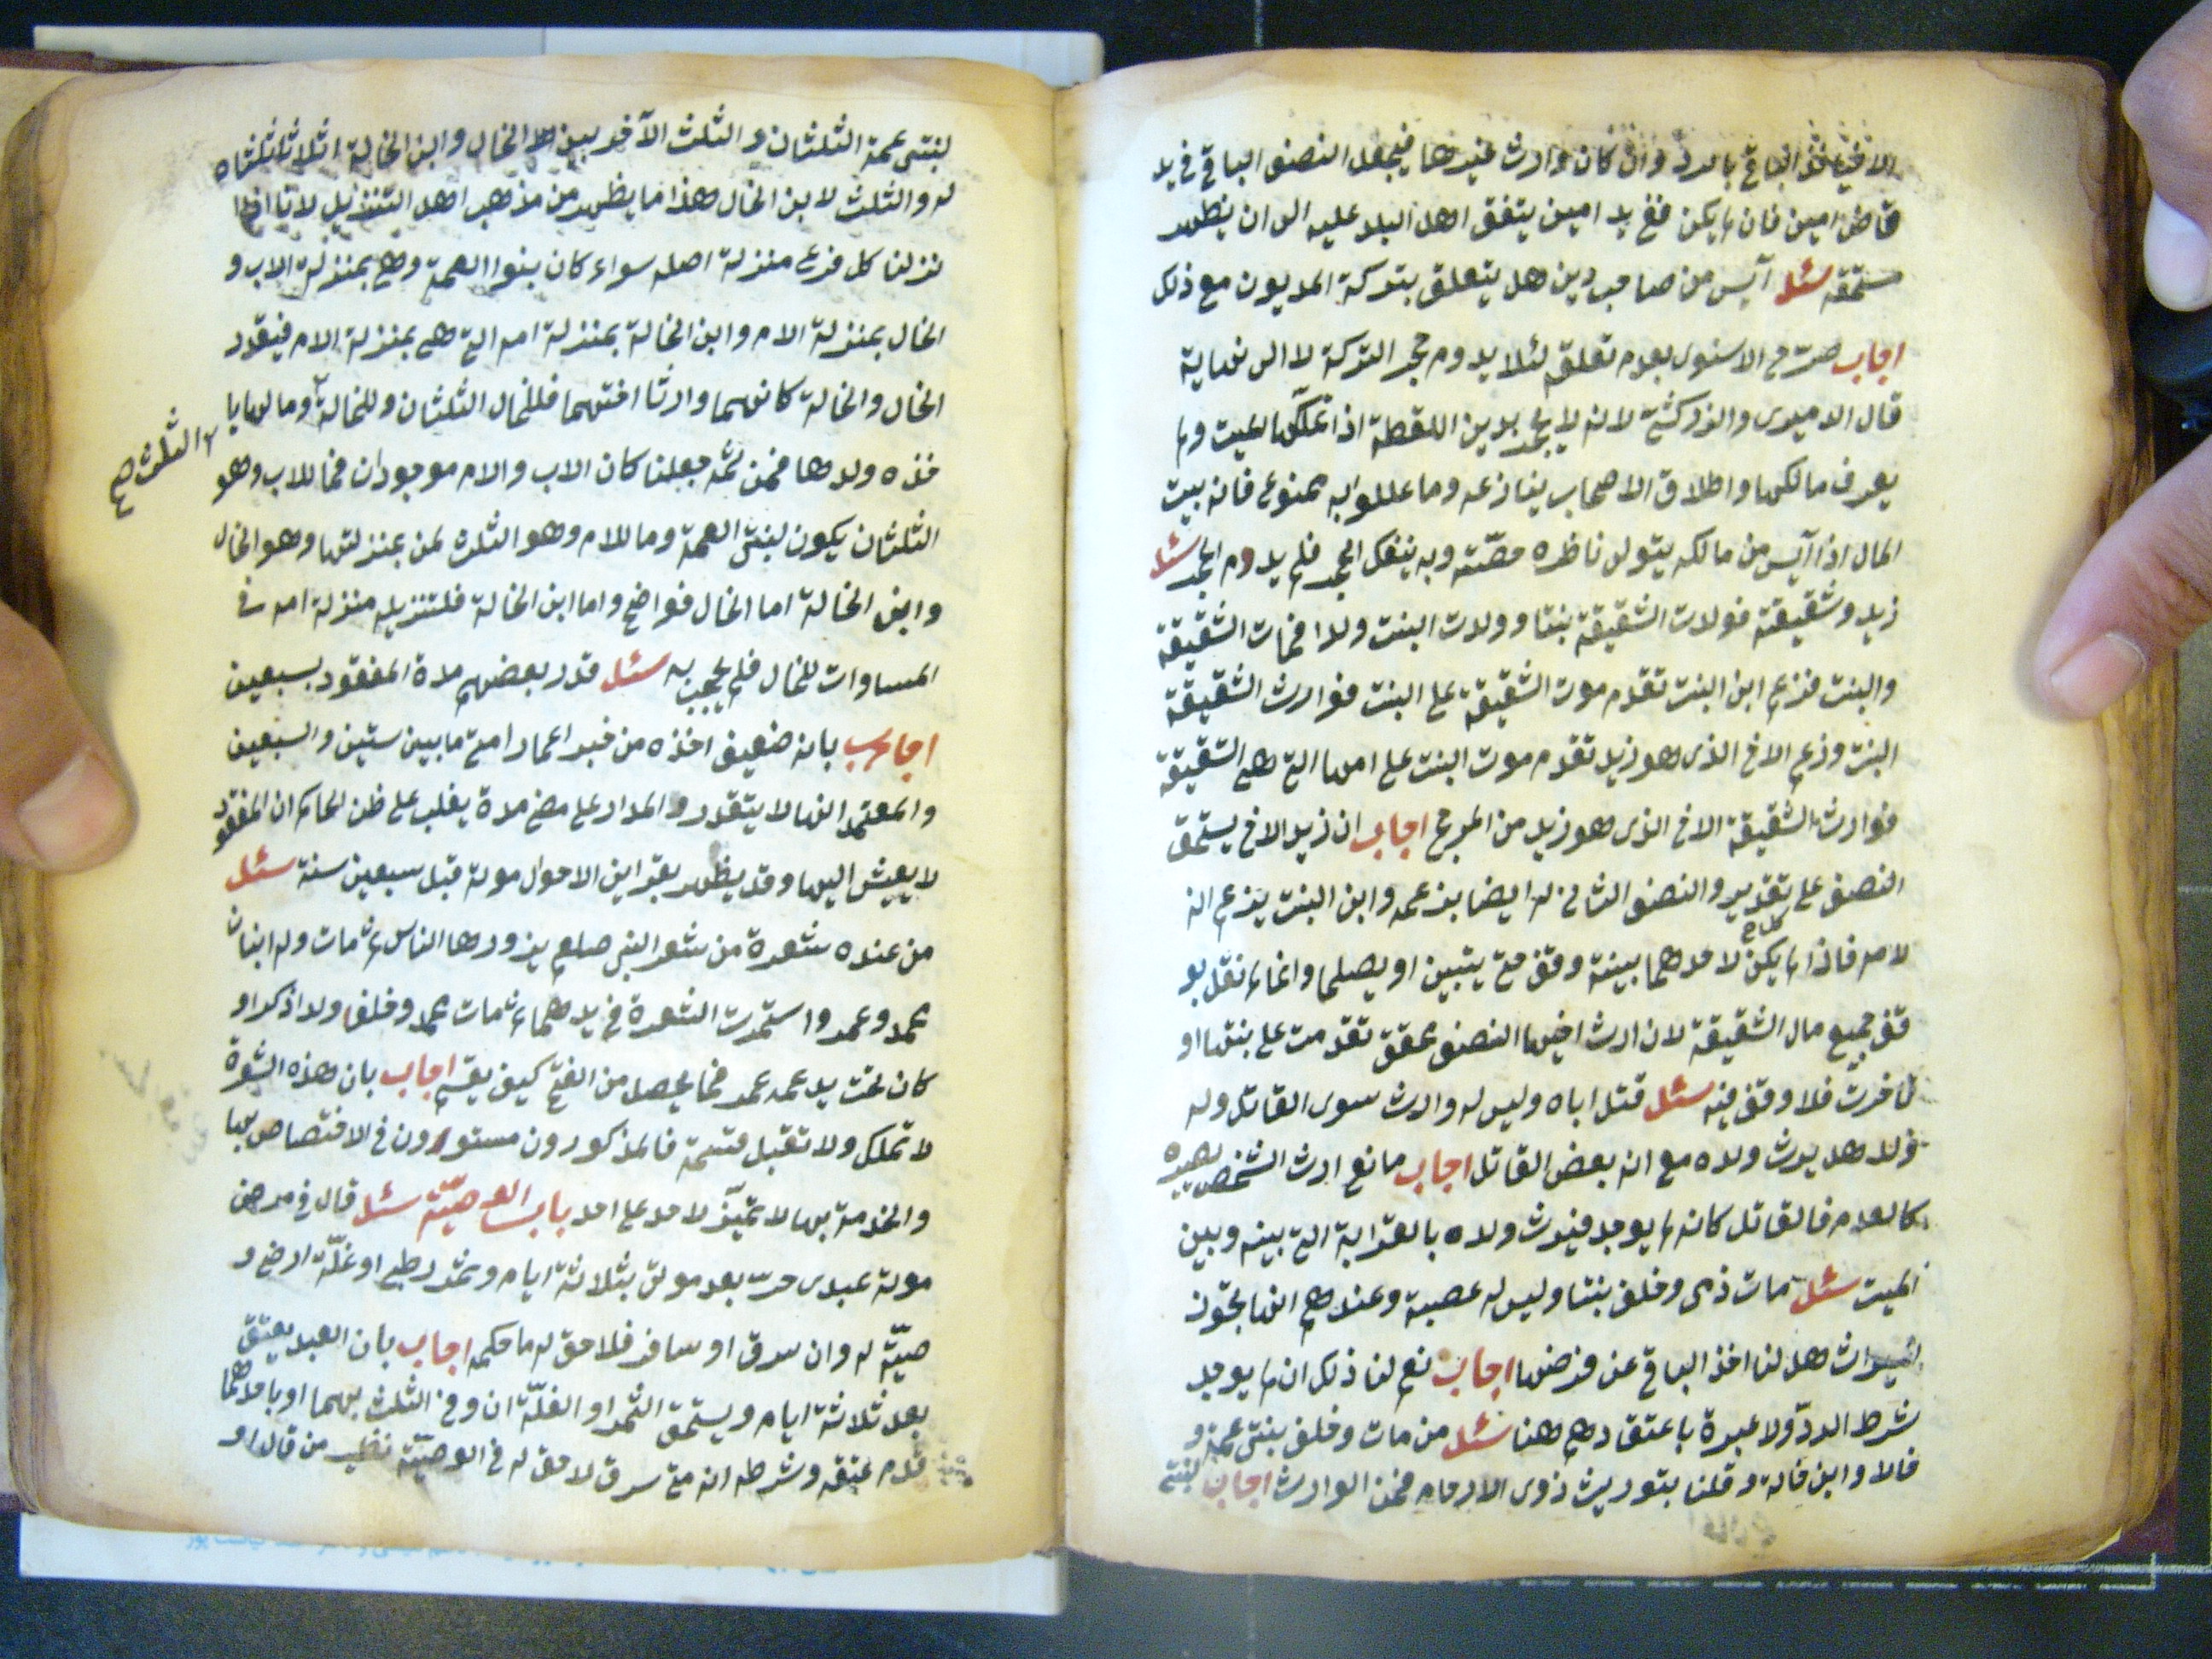 الباقي بالرد وان كان وارث غيرها فيجعل النصف الباقي في يد
قاض امين فان لم يكن ففي يد امين يتفق اهل البلد عليه الى ان يظهر
مستحقه سئل آيس من صاحب دين هل يتعلق بتركة المديون مع ذلك
اجاب صرّح الاسنوى بعدم تعلقه لئلا يدوم حجر التركة لا الى نهاية
قال الدميرى والزركشي لانه لا يحجر بدين اللقطة اذا تملكها لميت ولم
يعرف مالكها واطلاق الاصحاب ينازعه وما عللوا به ممنوع فانه بيت
المال اذا آيس من مالكه يتولى ناظره حصّته وبه ينفك الحجر فلم يدوم الحجر سئل
زيد وشقيقته فولدت الشقيقة بنتا وولدت البنت ولدا فماتت الشقيقة
والبنت فزعم ابن البنت تقدم موت الشقيقة على البنت فوارث الشقيقة
البنت وزعم الاخ الذى هو زيد تقدم موت البنت على امها التي هي الشقيقة
فوارث الشقيقة الاخ الذى هو زيد من المرجح اجاب ان زيد الاخ يستحق
النصف على تقدير والنصف الثانى له ايضا بزعمه وابن البنت يزعم انه
لامه فاذا لم يكن لاحدهما بينة وقف حتى يتبين او يصلحا وانما لم نقل بو
قف جميع مال الشقيقة لان ارث اخيها النصف محقق تقدمت على بنتها او
تاخرت فلا وقف فيه سئل قتل اباه وليس له وارث سوى القاتل وله
ولد هل يرث ولده مع انه بعض القاتل اجاب مانع ارث الشخص يصيره
كالعدم فالقاتل كانه لم يوجد فيرث ولده بالقرابة التي بينه وبين
الميت سئل مات ذمى وخلف بنتا وليس له عصبة وعندهم انها تحوز
الميراث هل لنا اخذ الباقي عن فرضها اجاب نعم لنا ذلك ان لم يوجد
شرط الردّ ولا عبرة باعتقادهم هنا سئل من مات وخلف بنتي عمة و
خالا وابن خالة وقلنا بتوريث ذوى الارحام فمن الوارث اجاب لبنتي
لبنتى عمة الثلثان والثلث الآخر بين الخال وابن الخالة اثلاثا ثلثاه
له والثلث لابن الخال هذا ما يظهر من مذهب اهل التنزيل لانا اذا
نزلنا كل فرع منزلة اصله سواء كان بنوا العمة وهي بمنزلة الاب و
الخال بمنزلة الام وابن الخالة بمنزلة امه التي هي بمنزلة الام فيقدر
الخال والخالة كانهما وارثا اختهما فللخال الثلثان وللخالة وما لها يا
الثلث صح
خذه ولدها فمن ثمه جعلنا كان الاب والام موجودان فما للاب وهو
الثلثان يكون لبنتي العمة وما للام وهو الثلث لمن بمنزلتها وهو الخال
وابن الخالة اما الخال فواضح واما ابن الخالة فلتنزيله منزلة امه في
المساوات للخال فلم يحجب به سئل قدر بعضهم مدة المفقود بسبعين
اجاب بانه ضعيف اخذه من خبر اعمار امتي ما بين ستين والسبعين
والمعتمد انها لا يتقدر والمدار على مضي مدة يغلب على ظن الحاكم ان المفقود
لا يعيش اليها وقد يظهر بقراين الاحوال موته قبل سبعين سنة سئل
من عنده شعرة من شعر النبي صلعم يزورها الناس ثم مات وله ابنان
محمد وعمر واستمرت الشعرة في يدهما ثم مات محمد وخلف ولدا ذكرا و
كان تحت يد عمه عمر فما يحصل من الفتح كيف يقسم اجاب بان هذه الشعرة
لا تملك ولا تقبل قسمة فالمذكورون مستوون في الاختصاص بها
والخدمة بها لا تميّز لاحد على احد باب الوصيّة سئل قال في مرض
موته عبدى حرّ بعد موتي بثلاثة ايام وثمر رطبي او غلّة ارضي و
صيّة له وان سرق او سافر فلا حق له ما حكمه اجاب بان العبد يعتق
بعد ثلاثة ايام ويستحق الثمر او الغلّة ان وفى الثلث بهما او باحدهما
فلام عتقه وشرطه انه متى سرق لا حق له في الوصيّة نظير من قال او